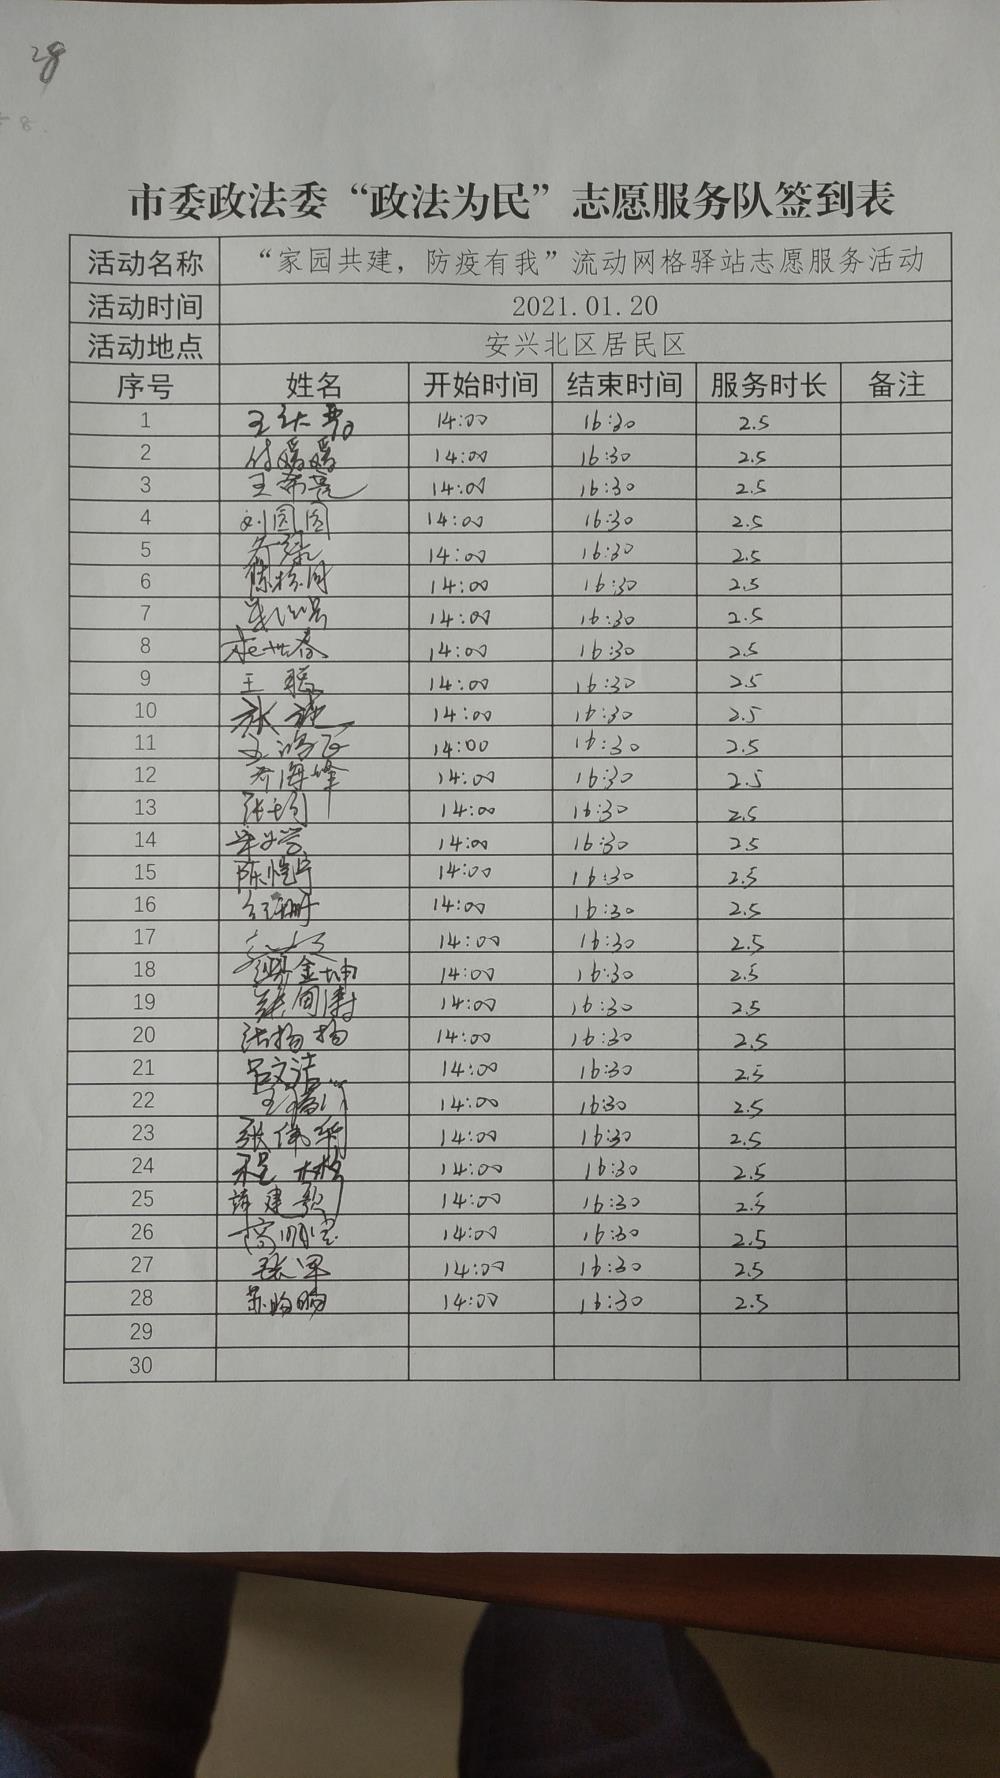 28
市委政法委“政法为民”志愿服务队签到表
活动名称 “家园共建，防疫有我”流动网格驿站志愿服务活动
活动时间 2021.01.20
活动地点 安兴北区居民区
序号 姓名 开始时间 结束时间 服务时长 备注
1 14:00 16:30 2.5
2 付媛媛 14:00 16:30 2.5
3 王希亮 14:00 16:30 2.5
4 刘园园 14:00 16:30 2.5
5 14:00 16:30 2.5
6 14:00 16:30 2.5
7 14:00 16:30 2.5
8 14:00 16:30 2.5
9 王聪 14:00 16:30 2.5
10 14:00 16:30 2.5
11 14:00 16:30 2.5
12 齐海峰 14:00 16:30 2.5
13 张均 14:00 16:30 2.5
14 14:00 16:30 2.5
15 陈恺宁 14:00 16:30 2.5
16 14:00 16:30 2.5
17 14:00 16:30 2.5
18 梁金坤 14:00 16:30 2.5
19 14:00 16:30 2.5
20 张杨杨 14:00 16:30 2.5
21 吕文洁 14:00 16:30 2.5
22 14:00 16:30 2.5
23 张伟 14:00 16:30 2.5
24 14:00 16:30 2.5
25 14:00 16:30 2.5
26 高明宝 14:00 16:30 2.5
27 张军 14:00 16:30 2.5
28 14:00 16:30 2.5
29
30